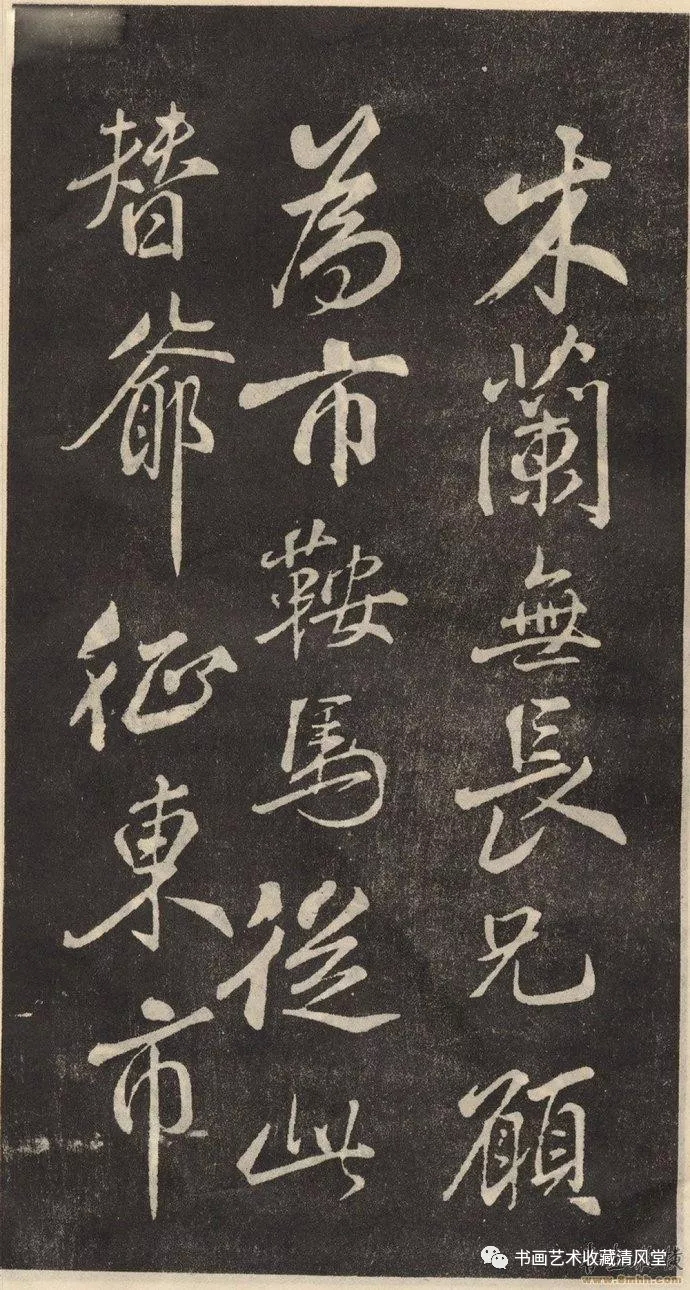 木蘭無長兄願
為市鞍馬從此
替爺征東市
书画艺术收藏清风堂
www.9mhh.com